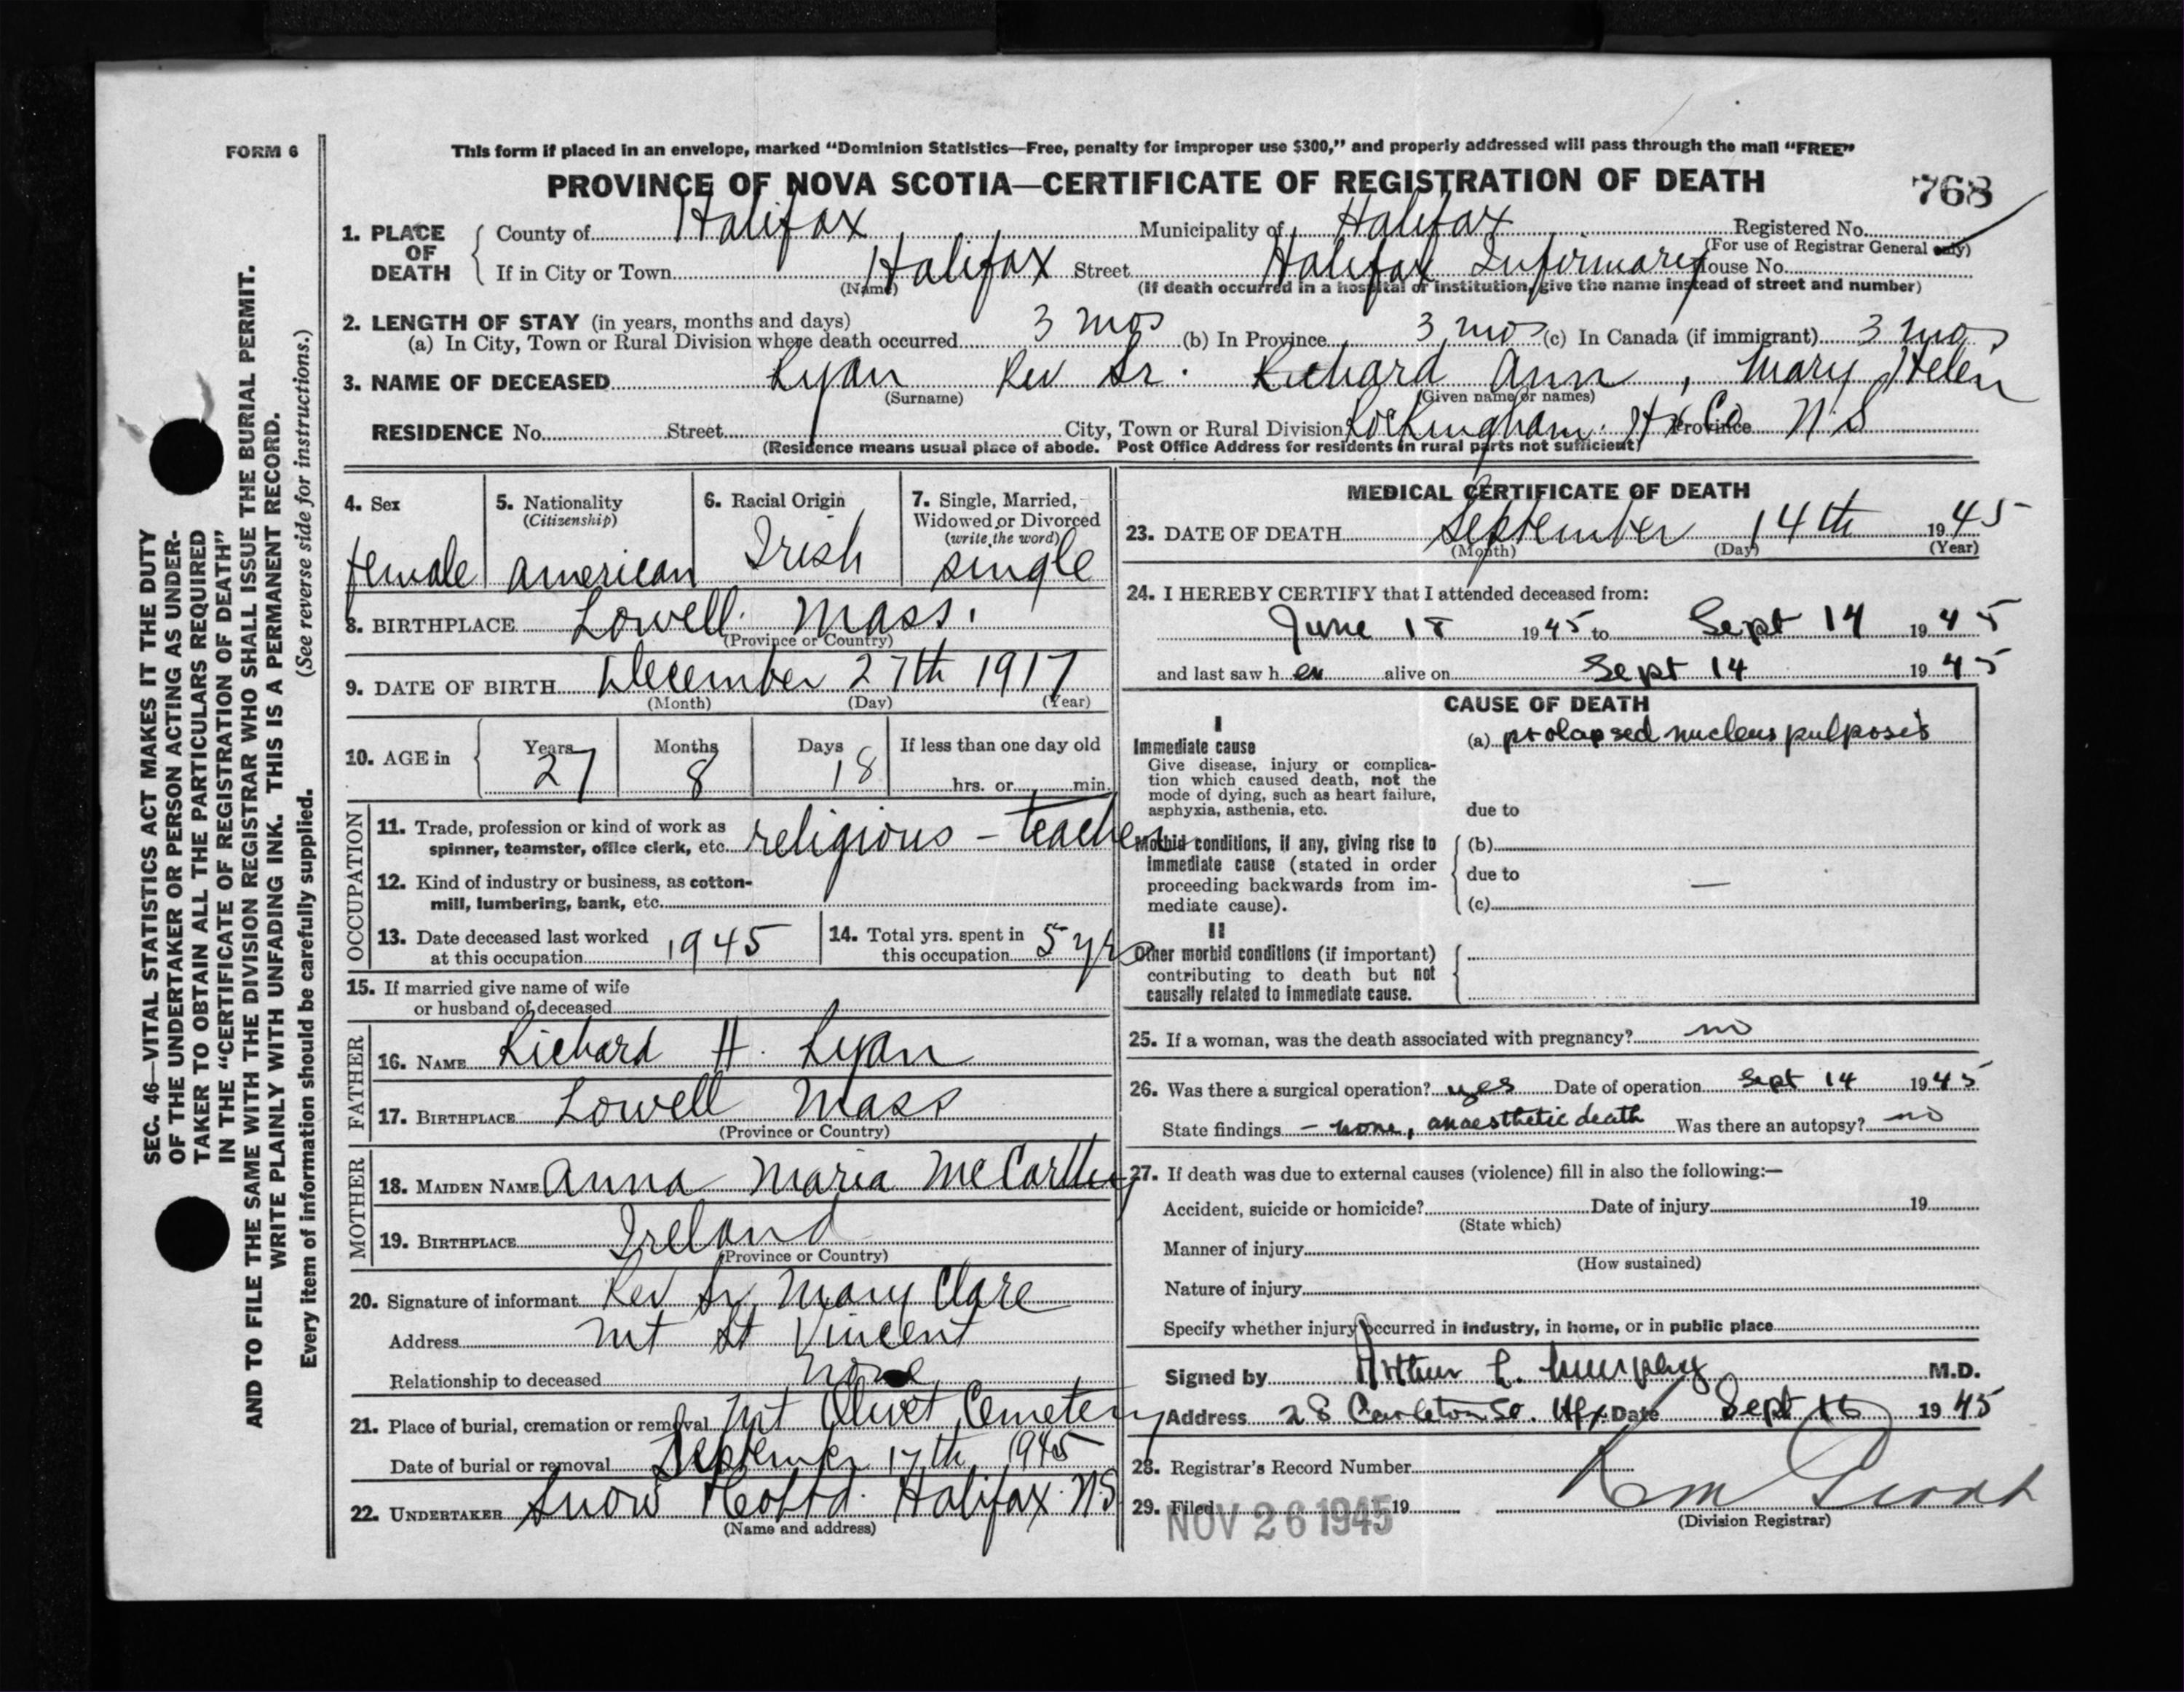 FORM 6
This form if placed in an envelope, marked “Dominion Statistics—Free, penalty for improper use $300,” and properly addressed will pass through the mail “FREE”
PROVINCE OF NOVA SCOTIA—CERTIFICATE OF REGISTRATION OF DEATH
768
1. PLACE OF DEATH
County of Halifax Municipality of Halifax Registered No.
(For use of Registrar General only)
If in City or Town Halifax Street Halifax Infirmary House No.
(Name) (If death occurred in a hospital or institution, give the name instead of street and number)
2. LENGTH OF STAY (in years, months and days)
(a) In City, Town or Rural Division where death occurred 3 mos (b) In Province 3 mos (c) In Canada (if immigrant) 3 mos
3. NAME OF DECEASED Ryan Rev Sr. Richard Ann, Mary Helen
(Surname) (Given name or names)
RESIDENCE No. Street City, Town or Rural Division Rockingham. Hx Co Province N.S
(Residence means usual place of abode. Post Office Address for residents in rural parts not sufficient)
4. Sex
female
5. Nationality
(Citizenship)
american
6. Racial Origin
Irish
7. Single, Married,
Widowed or Divorced
(write the word)
single
8. BIRTHPLACE Lowell Mass.
(Province or Country)
9. DATE OF BIRTH December 27th 1917
(Month) (Day) (Year)
10. AGE in
Years 27
Months 8
Days 18
If less than one day old
hrs. or min.
OCCUPATION
11. Trade, profession or kind of work as
spinner, teamster, office clerk, etc. religious - teacher
12. Kind of industry or business, as cotton-
mill, lumbering, bank, etc.
13. Date deceased last worked
at this occupation 1945
14. Total yrs. spent in
this occupation 5 yrs
15. If married give name of wife
or husband of deceased
FATHER
16. NAME Richard H. Ryan
17. BIRTHPLACE Lowell Mass
(Province or Country)
MOTHER
18. MAIDEN NAME Anna Maria McCarthy
19. BIRTHPLACE Ireland
(Province or Country)
20. Signature of informant Rev Sr Mary Clare
Address Mt St Vincent
Relationship to deceased None
21. Place of burial, cremation or removal Mt Olivet Cemetery
Date of burial or removal September 17th 1945
22. UNDERTAKER Snow & Co Ltd. Halifax. N.S
(Name and address)
MEDICAL CERTIFICATE OF DEATH
23. DATE OF DEATH September 14th 1945
(Month) (Day) (Year)
24. I HEREBY CERTIFY that I attended deceased from:
June 18 1945 to Sept 14 1945
and last saw her alive on Sept 14 1945
CAUSE OF DEATH
I
Immediate cause
Give disease, injury or complica-
tion which caused death, not the
mode of dying, such as heart failure,
asphyxia, asthenia, etc.
(a) prolapsed nucleus pulposis
due to
Morbid conditions, if any, giving rise to
immediate cause (stated in order
proceeding backwards from im-
mediate cause).
(b)
due to —
(c)
II
Other morbid conditions (if important)
contributing to death but not
causally related to immediate cause.
25. If a woman, was the death associated with pregnancy? no
26. Was there a surgical operation? yes Date of operation Sept 14 1945
State findings - none, anaesthetic death Was there an autopsy? no
27. If death was due to external causes (violence) fill in also the following:—
Accident, suicide or homicide? Date of injury 19
(State which)
Manner of injury
(How sustained)
Nature of injury
Specify whether injury occurred in industry, in home, or in public place
Signed by Arthur L. Murphy M.D.
Address 28 Carleton St. Hfx Date Sept 16 1945
28. Registrar's Record Number
29. Filed NOV 26 1945 19
(Division Registrar)
SEC. 46—VITAL STATISTICS ACT MAKES IT THE DUTY
OF THE UNDERTAKER OR PERSON ACTING AS UNDER-
TAKER TO OBTAIN ALL THE PARTICULARS REQUIRED
IN THE “CERTIFICATE OF REGISTRATION OF DEATH”
AND TO FILE THE SAME WITH THE DIVISION REGISTRAR WHO SHALL ISSUE THE BURIAL PERMIT.
WRITE PLAINLY WITH UNFADING INK. THIS IS A PERMANENT RECORD.
Every item of information should be carefully supplied. (See reverse side for instructions.)